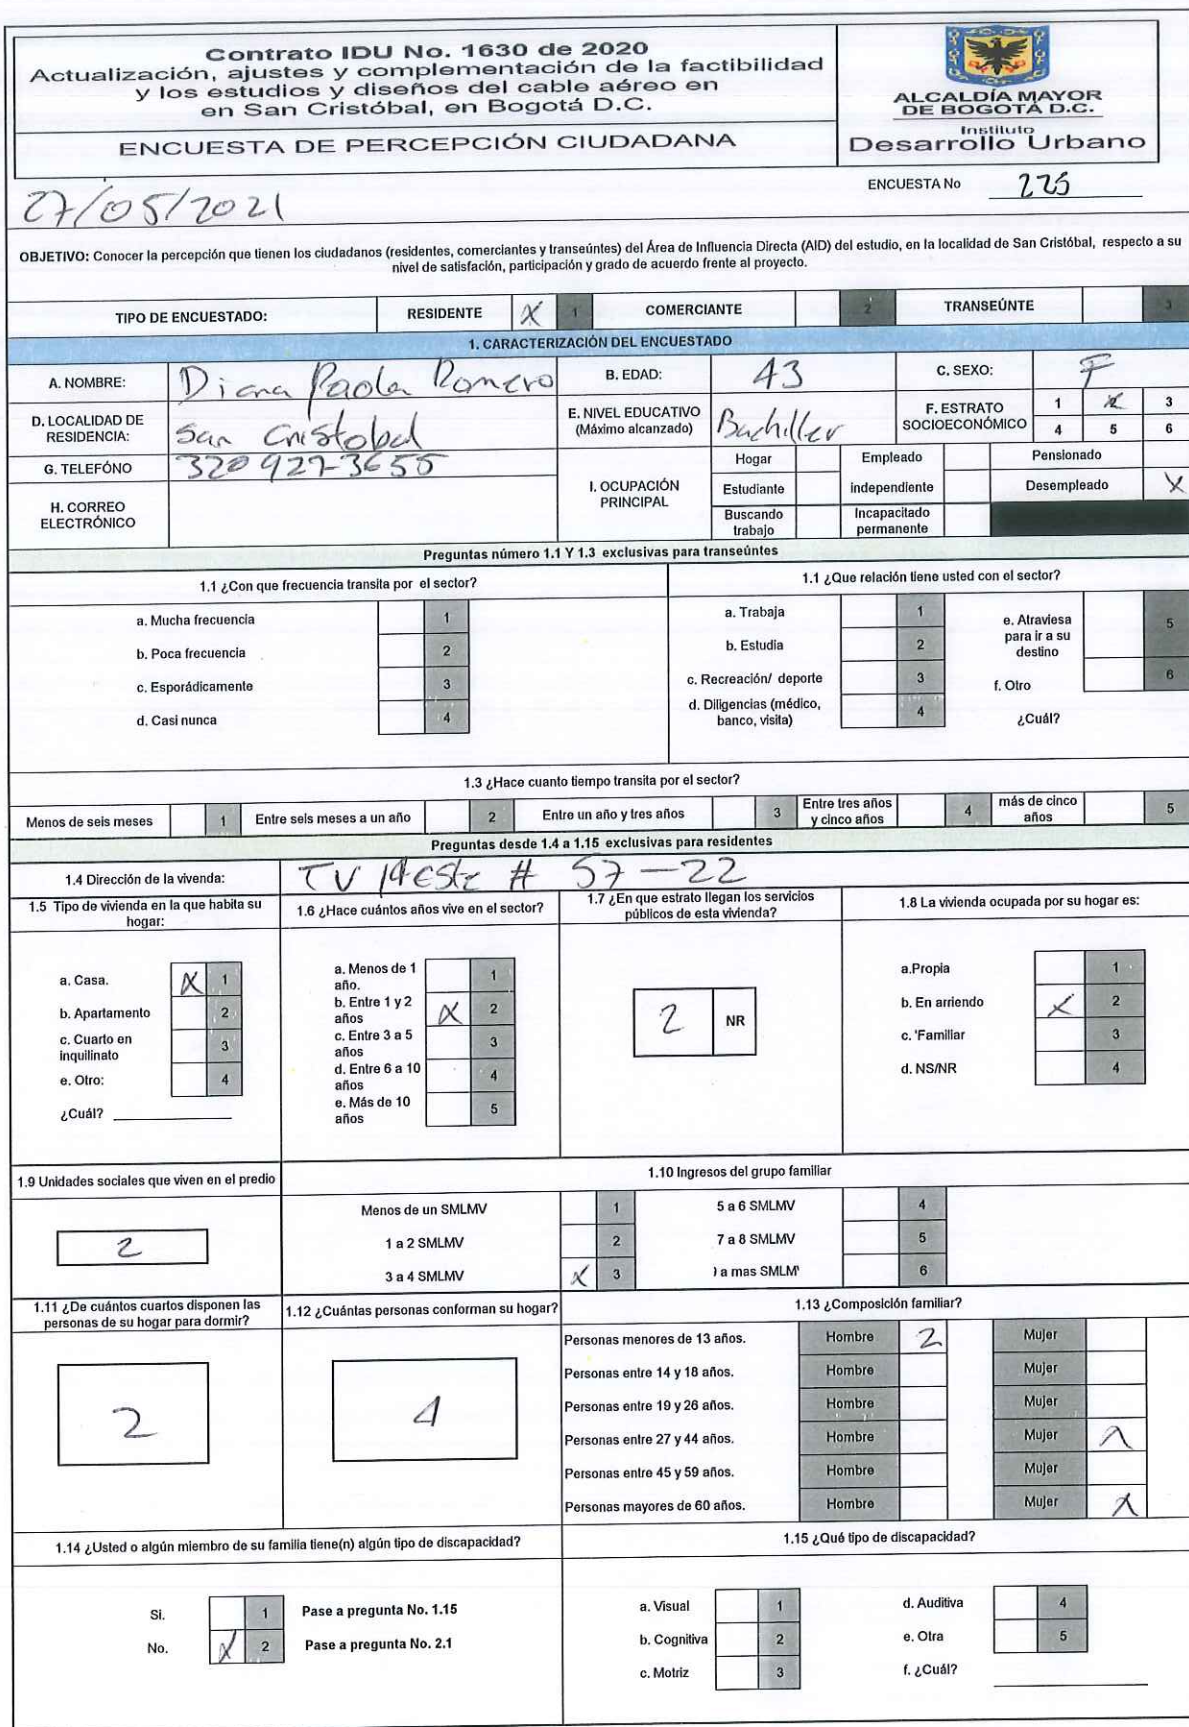 Contrato IDU No. 1630 de 2020
Actualización, ajustes y complementación de la factibilidad
y los estudios y diseños del cable aéreo en
en San Cristóbal, en Bogotá D.C.
ENCUESTA DE PERCEPCIÓN CIUDADANA
ALCALDÍA MAYOR
DE BOGOTÁ D.C.
Instituto
Desarrollo Urbano
27/05/2021
ENCUESTA No 225
OBJETIVO: Conocer la percepción que tienen los ciudadanos (residentes, comerciantes y transeúntes) del Área de Influencia Directa (AID) del estudio, en la localidad de San Cristóbal, respecto a su
nivel de satisfacción, participación y grado de acuerdo frente al proyecto.
TIPO DE ENCUESTADO: RESIDENTE X 1 COMERCIANTE 2 TRANSEÚNTE 3
1. CARACTERIZACIÓN DEL ENCUESTADO
A. NOMBRE: Diana Paola Romero B. EDAD: 43 C. SEXO: F
D. LOCALIDAD DE
RESIDENCIA: San Cristobal
E. NIVEL EDUCATIVO
(Máximo alcanzado) Bachiller
F. ESTRATO
SOCIOECONÓMICO
1 X 3
4 5 6
G. TELEFÓNO 320 927-3655
H. CORREO
ELECTRÓNICO
I. OCUPACIÓN
PRINCIPAL
Hogar Empleado Pensionado
Estudiante independiente Desempleado X
Buscando
trabajo
Incapacitado
permanente
Preguntas número 1.1 Y 1.3 exclusivas para transeúntes
1.1 ¿Con que frecuencia transita por el sector?
a. Mucha frecuencia 1
b. Poca frecuencia 2
c. Esporádicamente 3
d. Casi nunca 4
1.1 ¿Que relación tiene usted con el sector?
a. Trabaja 1
b. Estudia 2
c. Recreación/ deporte 3
d. Diligencias (médico,
banco, visita) 4
e. Atraviesa
para ir a su
destino 5
f. Otro 6
¿Cuál?
1.3 ¿Hace cuanto tiempo transita por el sector?
Menos de seis meses 1 Entre seis meses a un año 2 Entre un año y tres años 3 Entre tres años
y cinco años 4 más de cinco
años 5
Preguntas desde 1.4 a 1.15 exclusivas para residentes
1.4 Dirección de la vivenda: # 57-22
1.5 Tipo de vivienda en la que habita su
hogar:
a. Casa. X 1
b. Apartamento 2
c. Cuarto en
inquilinato 3
e. Otro: 4
¿Cuál?
1.6 ¿Hace cuántos años vive en el sector?
a. Menos de 1
año. 1
b. Entre 1 y 2
años X 2
c. Entre 3 a 5
años 3
d. Entre 6 a 10
años 4
e. Más de 10
años 5
1.7 ¿En que estrato llegan los servicios
públicos de esta vivienda?
2 NR
1.8 La vivienda ocupada por su hogar es:
a.Propia 1
b. En arriendo X 2
c. 'Familiar 3
d. NS/NR 4
1.9 Unidades sociales que viven en el predio
2
1.10 Ingresos del grupo familiar
Menos de un SMLMV 1 5 a 6 SMLMV 4
1 a 2 SMLMV 2 7 a 8 SMLMV 5
3 a 4 SMLMV X 3 a mas SMLM 6
1.11 ¿De cuántos cuartos disponen las
personas de su hogar para dormir?
2
1.12 ¿Cuántas personas conforman su hogar?
4
1.13 ¿Composición familiar?
Personas menores de 13 años. Hombre 2 Mujer
Personas entre 14 y 18 años. Hombre Mujer
Personas entre 19 y 26 años. Hombre Mujer
Personas entre 27 y 44 años. Hombre Mujer
Personas entre 45 y 59 años. Hombre Mujer
Personas mayores de 60 años. Hombre Mujer
1.14 ¿Usted o algún miembro de su familia tiene(n) algún tipo de discapacidad?
Si. 1 Pase a pregunta No. 1.15
No. X 2 Pase a pregunta No. 2.1
1.15 ¿Qué tipo de discapacidad?
a. Visual 1 d. Auditiva 4
b. Cognitiva 2 e. Otra 5
c. Motriz 3 f. ¿Cuál?